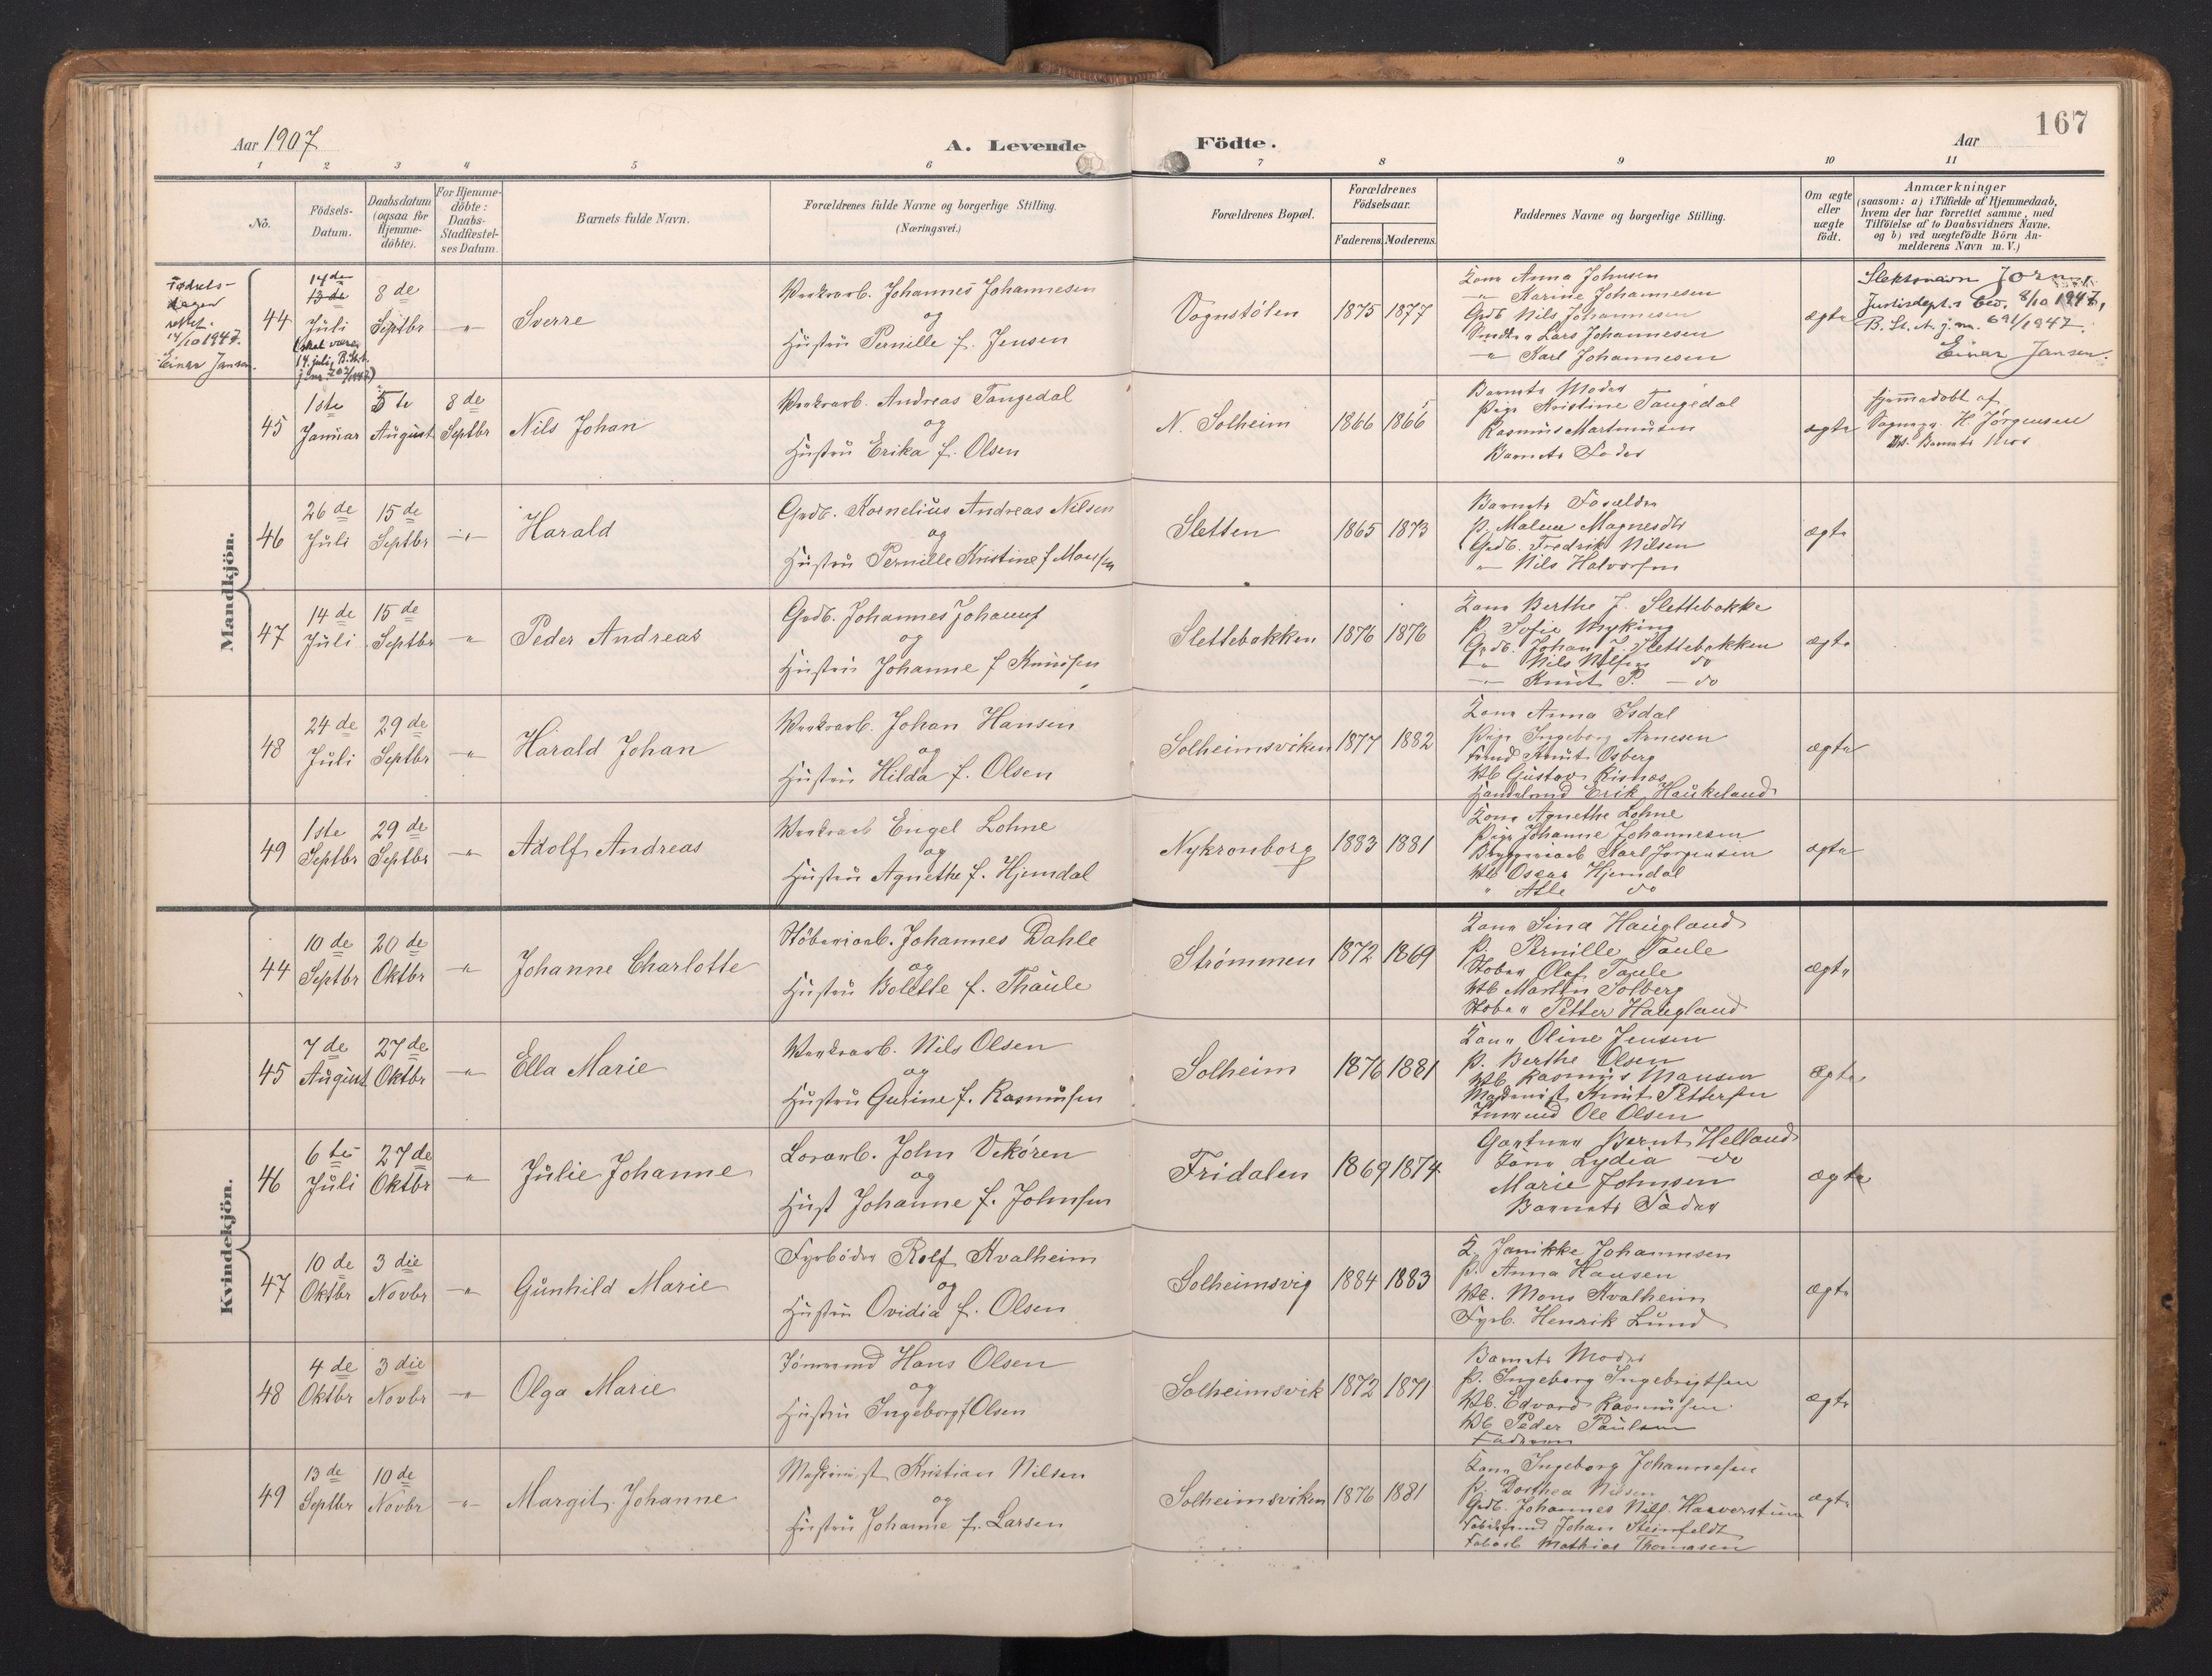 Aar 1907
A. Levende Födte.
Aar
167
1 2 3 4 5 6 7 8 9 10 11
Nö.
Födsels-
Datum.
Daabsdatum
(ogsaa for
Hjemme-
döbte).
For Hjemme-
döbte:
Daabs-
Stadfæstel-
ses Datum.
Barnets fulde Navn.
Forældrenes fulde Navne og borgerlige Stilling.
(Næringsvei.)
Forældrenes Bopæl.
Forældrenes
Födselsaar.
Faderens. Moderens.
Faddernes Navne og borgerlige Stilling.
Om ægte
eller
uægte
födt.
Anmærkninger
(saasom: a) i Tilfælde af Hjemmedaab,
hvem der har forrettet samme, med
Tilföielse af to Daabsvidners Navne.
og b) ved uægtefödte Börn An-
melderens Navn m. V.)
Mandkjön.
Fødsels-
dagen
rettet.
14/10 1947.
Einar Jansen.
44
14de
13de
Juli
(skal være
14. juli, B.St.b.
8de
Septbr
"
Sverre
Johannes Johannesen
og
Hustru Pernille f. Jensen
Vognstølen
1875 1877
Kone Anna Johnsen
" Karine Johannesen
Grdb Nils Johannesen
Lars Johannesen
" Karl Johannesen
ægte
Slektsnavn
Justisdept.s bev. 8/10 1947,
B. St. A. j.nr. 691/1947.
Einar Jansen.
45
1ste
Januar
5te
August
8de
Septbr
Nils Johan
Andreas Tangedal
og
Hustru Erika f. Olsen
N. Solheim
1866 1866
Barnets Moder
Pige Kristine Tangedal
Rasmus Martinusen
Barnets Fader
ægte
Hjemmedøbt af
H. Jørgensen
Barnets Mor
46
26de
Juli
15de
Septbr
"
Harald
Grdb. Kornelius Andreas Nilsen
og
Hustru Pernille Kristine f Monsen
Sletten
1865 1873
Barnets Forældre
P. Malene Magnesdtr
Grdb. Fredrik Nilsen
" Nils Halvorsen
ægte
47
14de
Juli
15de
Septbr
"
Peder Andreas
Grdb. Johannes
og
Hustru Johanne f Knudsen
Slettebakken
1876 1876
Kone Berthe J. Slettebakke
P. Sofie Myking
Grdb. Johan J. Slettebakken
" Nils Nilsen do
" Knut P. – do
ægte
48
24de
Juli
29de
Septbr
"
Harald Johan
Johan Hansen
og
Hustru Hilda f. Olsen
Solheimsviken
1877 1882
Kone Anna Isdal
Pige Ingeborg Arnesen
Knut Osberg
Vkb Gustav Risnes
Erik Haukeland
ægte
49
1ste
Septbr
29de
Septbr
"
Adolf Andreas
Engel Lohne
og
Hustru Agnethe f. Hjemdal
Nykronborg
1883 1881
Kone Agnethe Lohne
Pige Johanne Johannesen
Bryggeriarb Karl Jørgensen
Vkb Oscar Hjemdal
" Atle do
ægte
Kvindekjön.
44
10de
Septbr
20de
Oktbr
"
Johanne Charlotte
Støberiarb. Johannes Dahle
og
Hustru Bolette f. Thaule
Strømmen
1872 1869
Kone Sina Haugland
P. Pernille Taule
Støber Olaf Taule
Vkb Martin Solberg
Støber Petter Haugland
ægte
45
7de
August
27de
Oktbr
"
Ella Marie
Nils Olsen
og
Hustru Gurine f. Rasmussen
Solheim
1876 1881
Kone Oline Jensen
P. Berthe Olsen
Vkb Rasmus Monsen
Maskinist Knut Pettersen
Ole Olsen
ægte
46
6te
Juli
27de
Oktbr
"
Julie Johanne
John Vikøren
og
Hust Johanne f. Johnsen
Fridalen
1869 1874
Gartner Bernt Helland
Kone Lydia do
Marie Johnsen
Barnets Fader
ægte
47
10de
Oktbr
3die
Novbr
"
Gunhild Marie
Fyrbøder Rolf Kvalheim
og
Hustru Ovidia f. Olsen
Solheimsvig
1884 1883
K. Janikke Johannesen
P. Anna Hansen
Vkb. Mons Kvalheim
Fyrb. Henrik Lund
ægte
48
4de
Oktbr
3die
Novbr
"
Olga Marie
Hans Olsen
og
Hustru Ingeborg f Olsen
Solheimsvik
1872 1871
Barnets Moder
P. Ingeborg Ingebrigtsen
Vkb. Edvard Rasmussen
Vkb Peder Paulsen
Faderen
ægte
49
13de
Septbr
10de
Novbr
"
Margit Johanne
Maskinist Kristian Nilsen
og
Hustru Johanne f. Larsen
Solheimsviken
1876 1881
Kone Ingeborg Johannesen
P. Dorthea Nilsen
Grdb. Johannes Nils.
Johan Steinfeldt
Mathias Thomasen
ægte